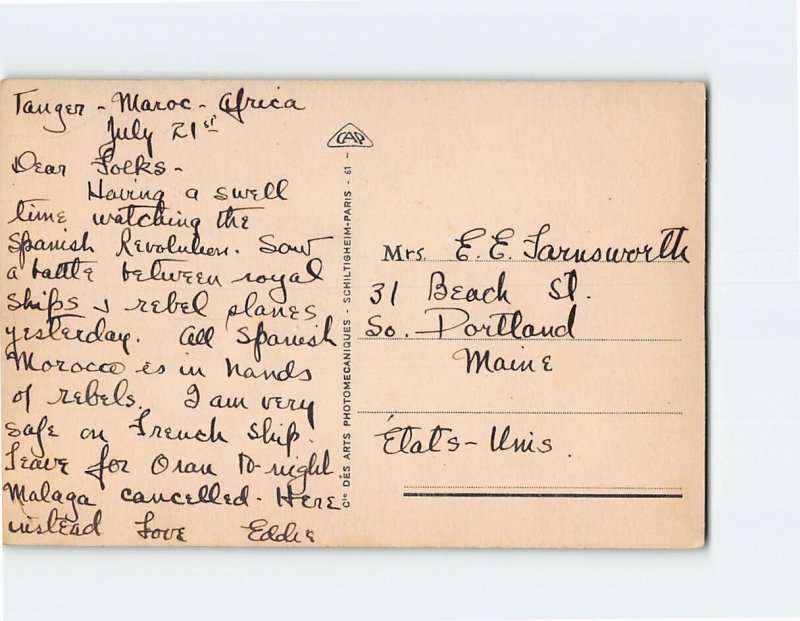 Tanger - Maroc - Africa
July 21st
Dear Folks -
Having a swell
time watching the
Spanish Revolution. Saw
a battle between royal
ships & rebel planes
yesterday. All Spanish
Morocco is in hands
of rebels. I am very
safe on French ship.
Leave for Oran to-night
Malaga cancelled - Here
instead Love Eddie
CAP
Cie DES ARTS PHOTOMECANIQUES - SCHILTIGHEIM-PARIS - 61 -
Mrs. E. E. Farnsworth
31 Beach St.
So. Portland
Maine
États-Unis.